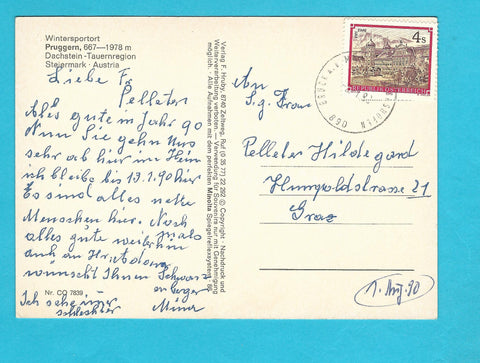 Wintersportort
Pruggern, 667—1978 m
Dachstein - Tauernregion
Steiermark · Austria
Liebe Fr.
Pelleter
Alles gute im Jahr 90
Nun Sie gehn uns
sehr ab hier im Heim
ich bleibe bis 13.1.90 hier
Es sind alles nette
Menschen hier. Noch
mals
alles gute weiterhin
auch an
wünscht Ihnen Schwarz
enberger
Minna
Ich
schlechter
Nr. CQ 7839
Verlag F. Hruby, 8740 Zeltweg, Tel. (0 35 77) 22 292 © Copyright · Nachdruck und
Weiterverarbeitung verboten — Verwendung für Souvenirs nur mit Genehmigung
möglich · Alle Aufnahmen mit dem perfekten Minolta Spiegelreflexsystem 88
4 S
REPUBLIK ÖSTERREICH
An
Sg. Frau
Pelleter Hildegard
21
Graz
90